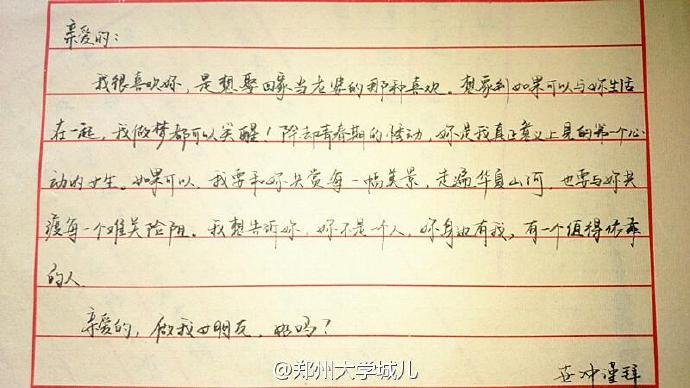 亲爱的：
我很喜欢妳，是想娶回家当老婆的那种喜欢。想象到如果可以与妳生活
在一起，我做梦都可以笑醒！除却青春期的悸动，妳是我真正意义上见的第一个心
动的女生。如果可以，我要和妳共赏每一幅美景，走遍华夏山河，也要与妳共
渡每一个难关险阻。我想告诉妳，妳不是一个人，妳身边有我，有一个值得依靠
的人。
亲爱的，做我女朋友，好吗？
谨拜
@郑州大学城儿